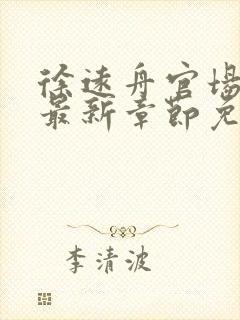 徐远舟官场
最新章节免
李清波